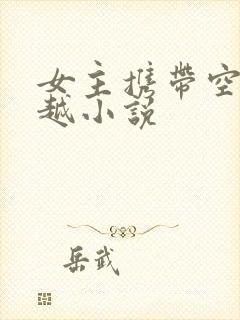 女主携带空
越小说
岳武